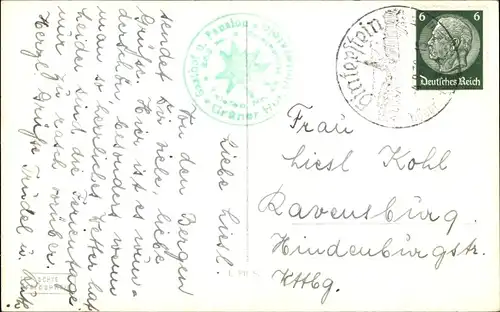 Liebe Liesl.
Von den Bergen
sendet dir viele, liebe
Grüße. Hier ist es wun-
derschön, besonders wenn
man so herrliches Wetter hat.
Leider sind die Ferientage
nur zu rasch vorüber.
Herzl. Grüße Trudel u.
Gasthof u. Pension
Grüner
Hinterstein
6 6
Deutsches Reich
Frau
Liesl Kohl
Ravensburg.
Hindenburgstr.
Wttbg.
ECHTE